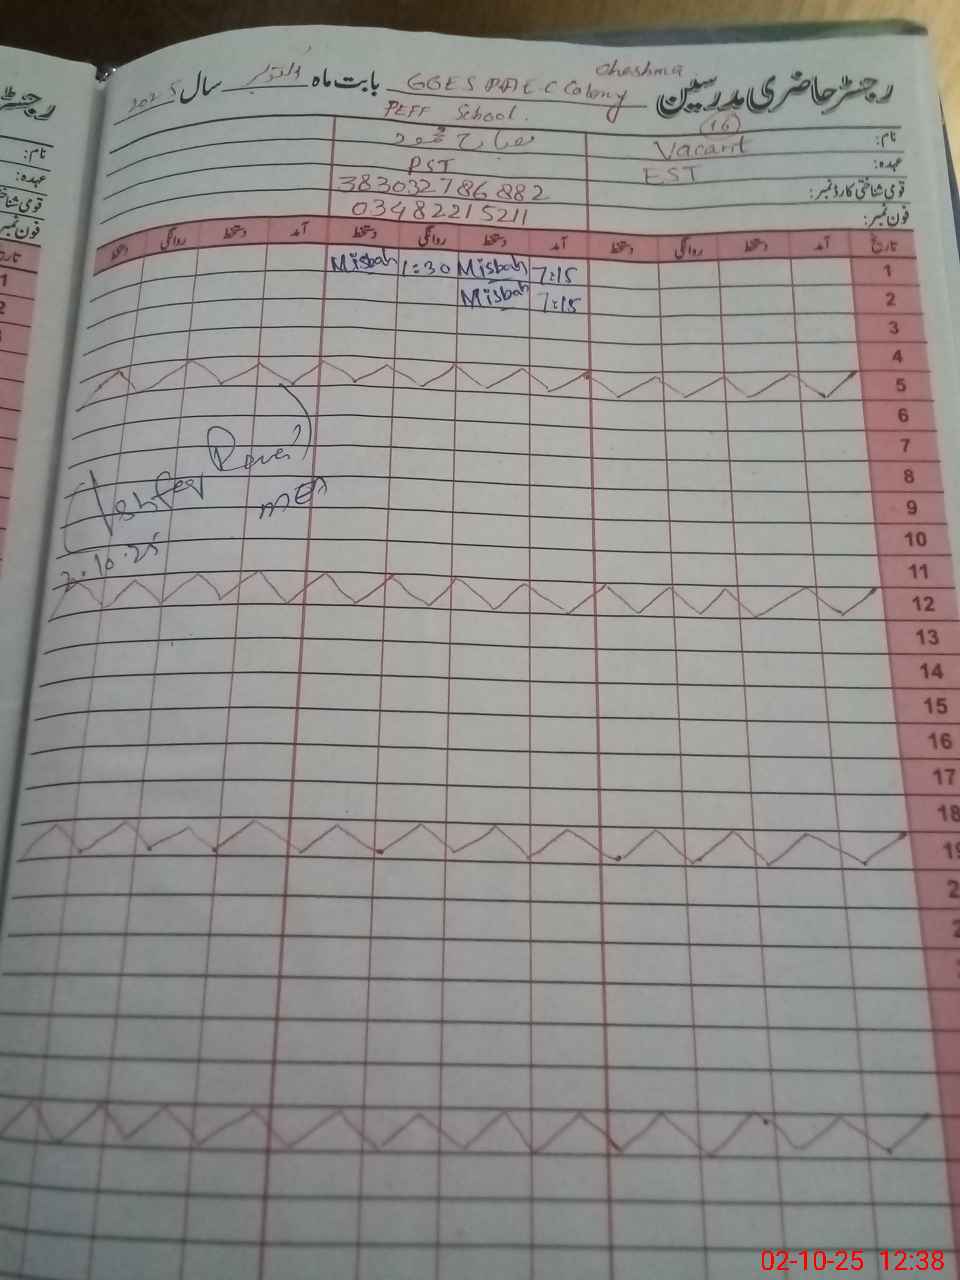 رجسٹر حاضری مدرسین GGES PAEC Colony Chashma بابت ماہ اکتوبر سال 2025
PEFF School.
(16)
نام: Vacant مصباح محمود
عہدہ: EST PST
قومی شناختی کارڈ نمبر: 383032786882
فون نمبر: 03482215211
تاریخ آمد دستخط روانگی دستخط آمد دستخط روانگی دستخط آمد دستخط روانگی دستخط
1 7:15 Misbah 1:30 Misbah
2 7:15 Misbah
3
4
5
6
7
8
9
10
11
12
13
14
15
16
17
18
19
MEA
2.10.25
رجسٹر
نام:
عہدہ:
قومی شناختی
فون نمبر
1
02-10-25 12:38